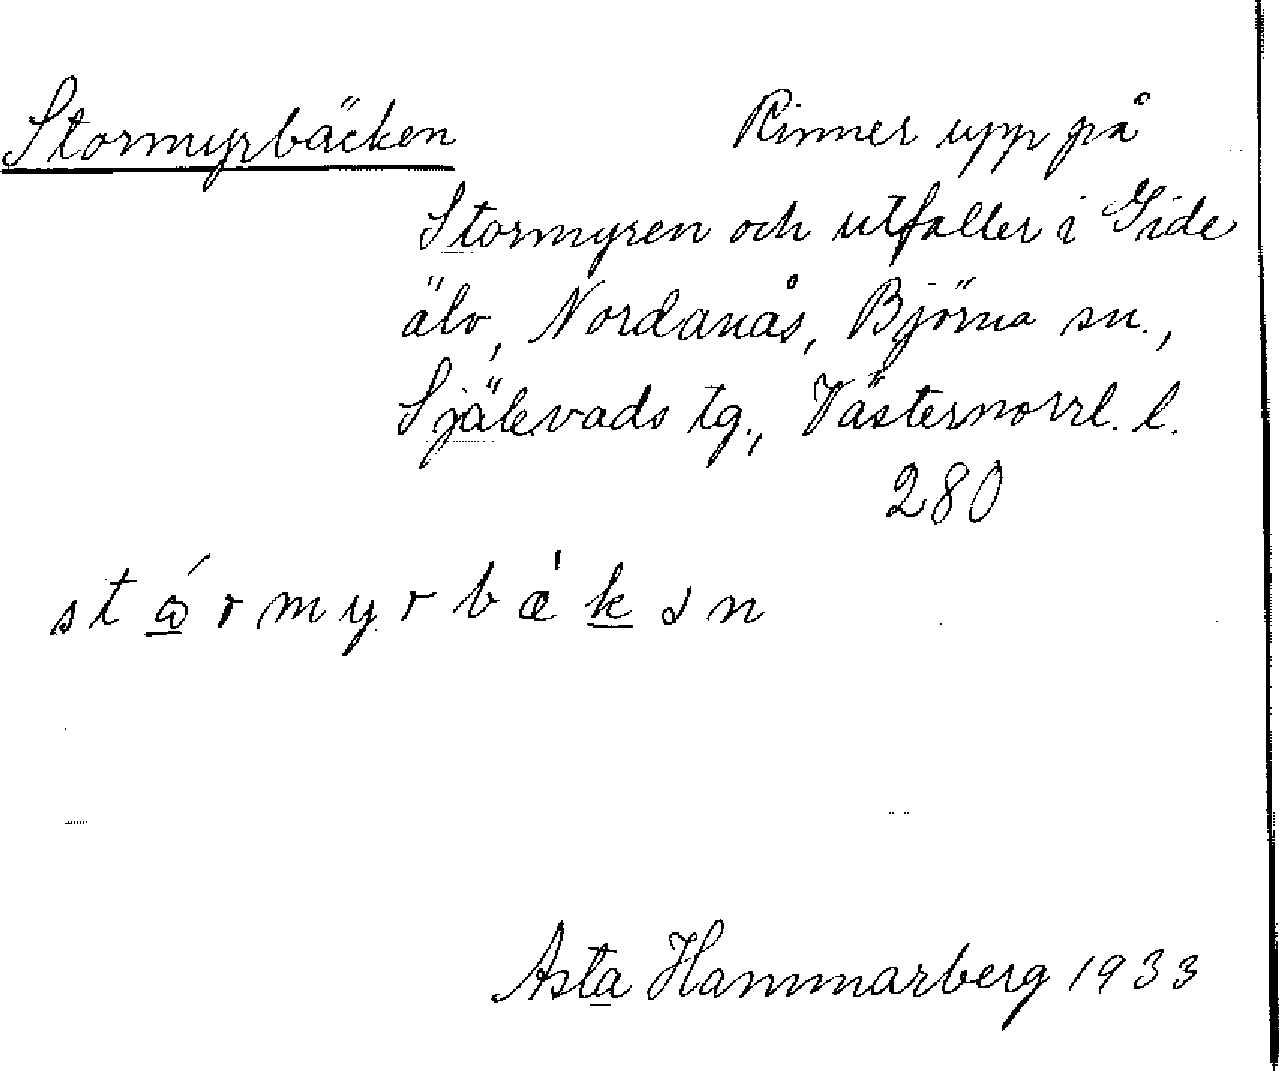 Stormyrbäcken Rinner upp på
Stormyren och utfaller i Gide
älv, Nordanås, Björna sn.,
Själevads tg., Västernorrl. l.
280
st ώ r m y r b æ̍ k ə n
Asta Hammarberg 1933